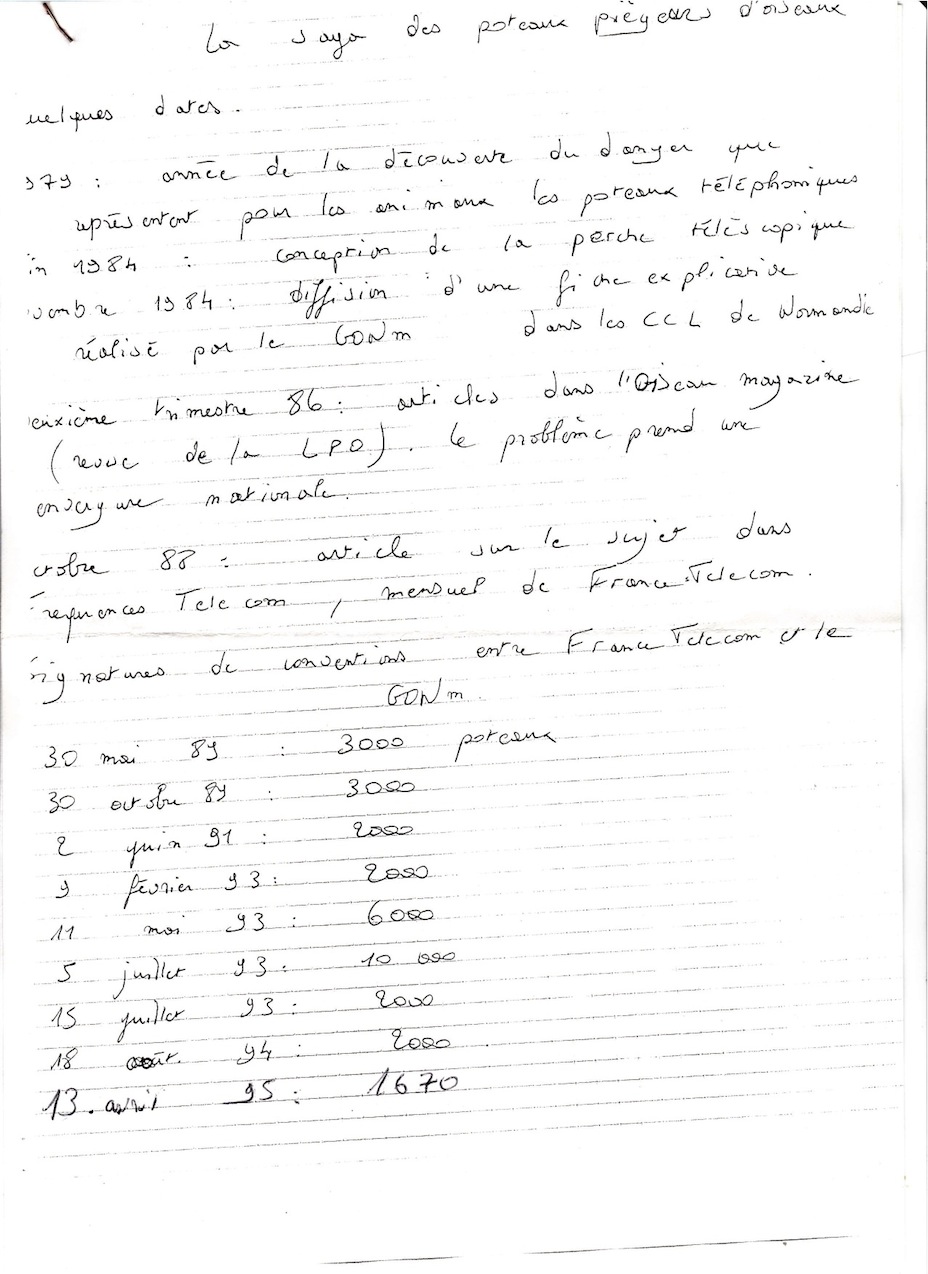 La saga des poteaux piègeurs d'oiseaux
uelques dates.
979 : année de la découverte du danger que
représentent pour les animaux les poteaux téléphoniques
in 1984 : conception de la perche télèscopique
vembre 1984 : diffision d'une fiche explicative
réalisé par le GONm dans les CCL de Normandie
euxième trimestre 86 : articles dans l'Oiseau magazine
(revue de la LPO). le problème prend une
envergure nationale.
ctobre 88 : article sur le sujet dans
frequences Telecom, mensuel de France.Telecom.
signatures de conventions entre France Telecom et le
GONm.
30 mai 89 : 3000 poteaux
30 octobre 89 : 3000
2 juin 91 : 2000
9 février 93 : 2000
11 mai 93 : 6000
5 juillet 93 : 10 000
15 juillet 93 : 2000
18 août. 94 : 2000
13. avril 95 : 1670